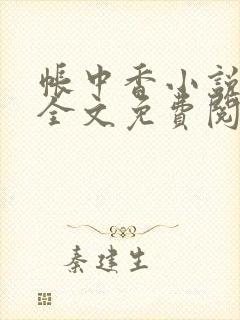 帐中香小説
全文免費閱
秦建生